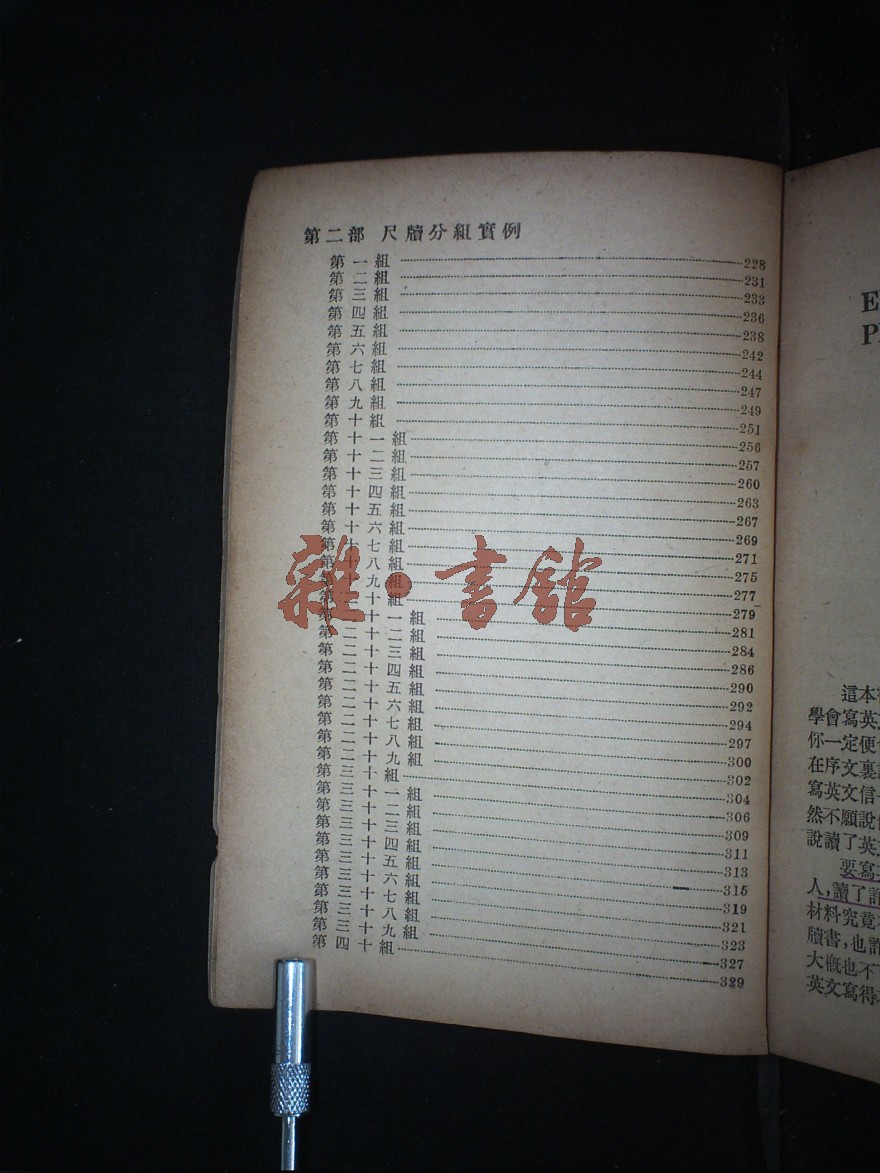 第二部 尺牘分組實例
第一組 228
第二組 231
第三組 233
第四組 236
第五組 238
第六組 242
第七組 244
第八組 247
第九組 249
第十組 251
第十一組 256
第十二組 257
第十三組 260
第十四組 263
第十五組 267
第十六組 269
第十七組 271
第十八組 275
第十九組 277
第二十組 279
第二十一組 281
第二十二組 284
第二十三組 286
第二十四組 290
第二十五組 292
第二十六組 294
第二十七組 297
第二十八組 300
第二十九組 302
第三十組 304
第三十一組 306
第三十二組 309
第三十三組 311
第三十四組 313
第三十五組 315
第三十六組 319
第三十七組 321
第三十八組 323
第三十九組 327
第四十組 329
雜·書館
這本
學會寫英
你一定便
在序文裏
寫英文信
然不願說
說讀了英
要寫
人,讀了
材料究竟
牘書,也
大概也不
英文寫得